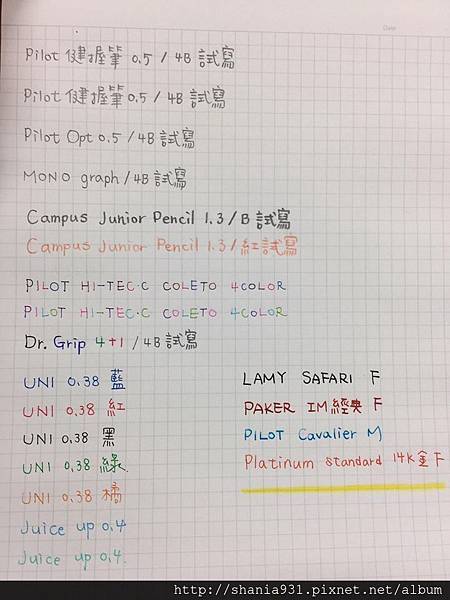 Date
Pilot 健握筆 0.5 / 4B 試寫
Pilot 健握筆 0.5 / 4B 試寫
Pilot Opt 0.5 / 4B 試寫
MONO graph / 4B 試寫
Campus Junior Pencil 1.3 / B 試寫
Campus Junior Pencil 1.3 / 紅試寫
PILOT HI-TEC-C COLETO 4COLOR
PILOT HI-TEC-C COLETO 4COLOR
Dr. Grip 4+1 / 4B 試寫
UNI 0.38 藍
UNI 0.38 紅
UNI 0.38 黑
UNI 0.38 綠
UNI 0.38 橘
Juice up 0.4
Juice up 0.4.
LAMY SAFARI F
PAKER IM 經典 F
PILOT Cavalier M
Platinum standard 14K金 F
http://shania931.pixnet.net/album